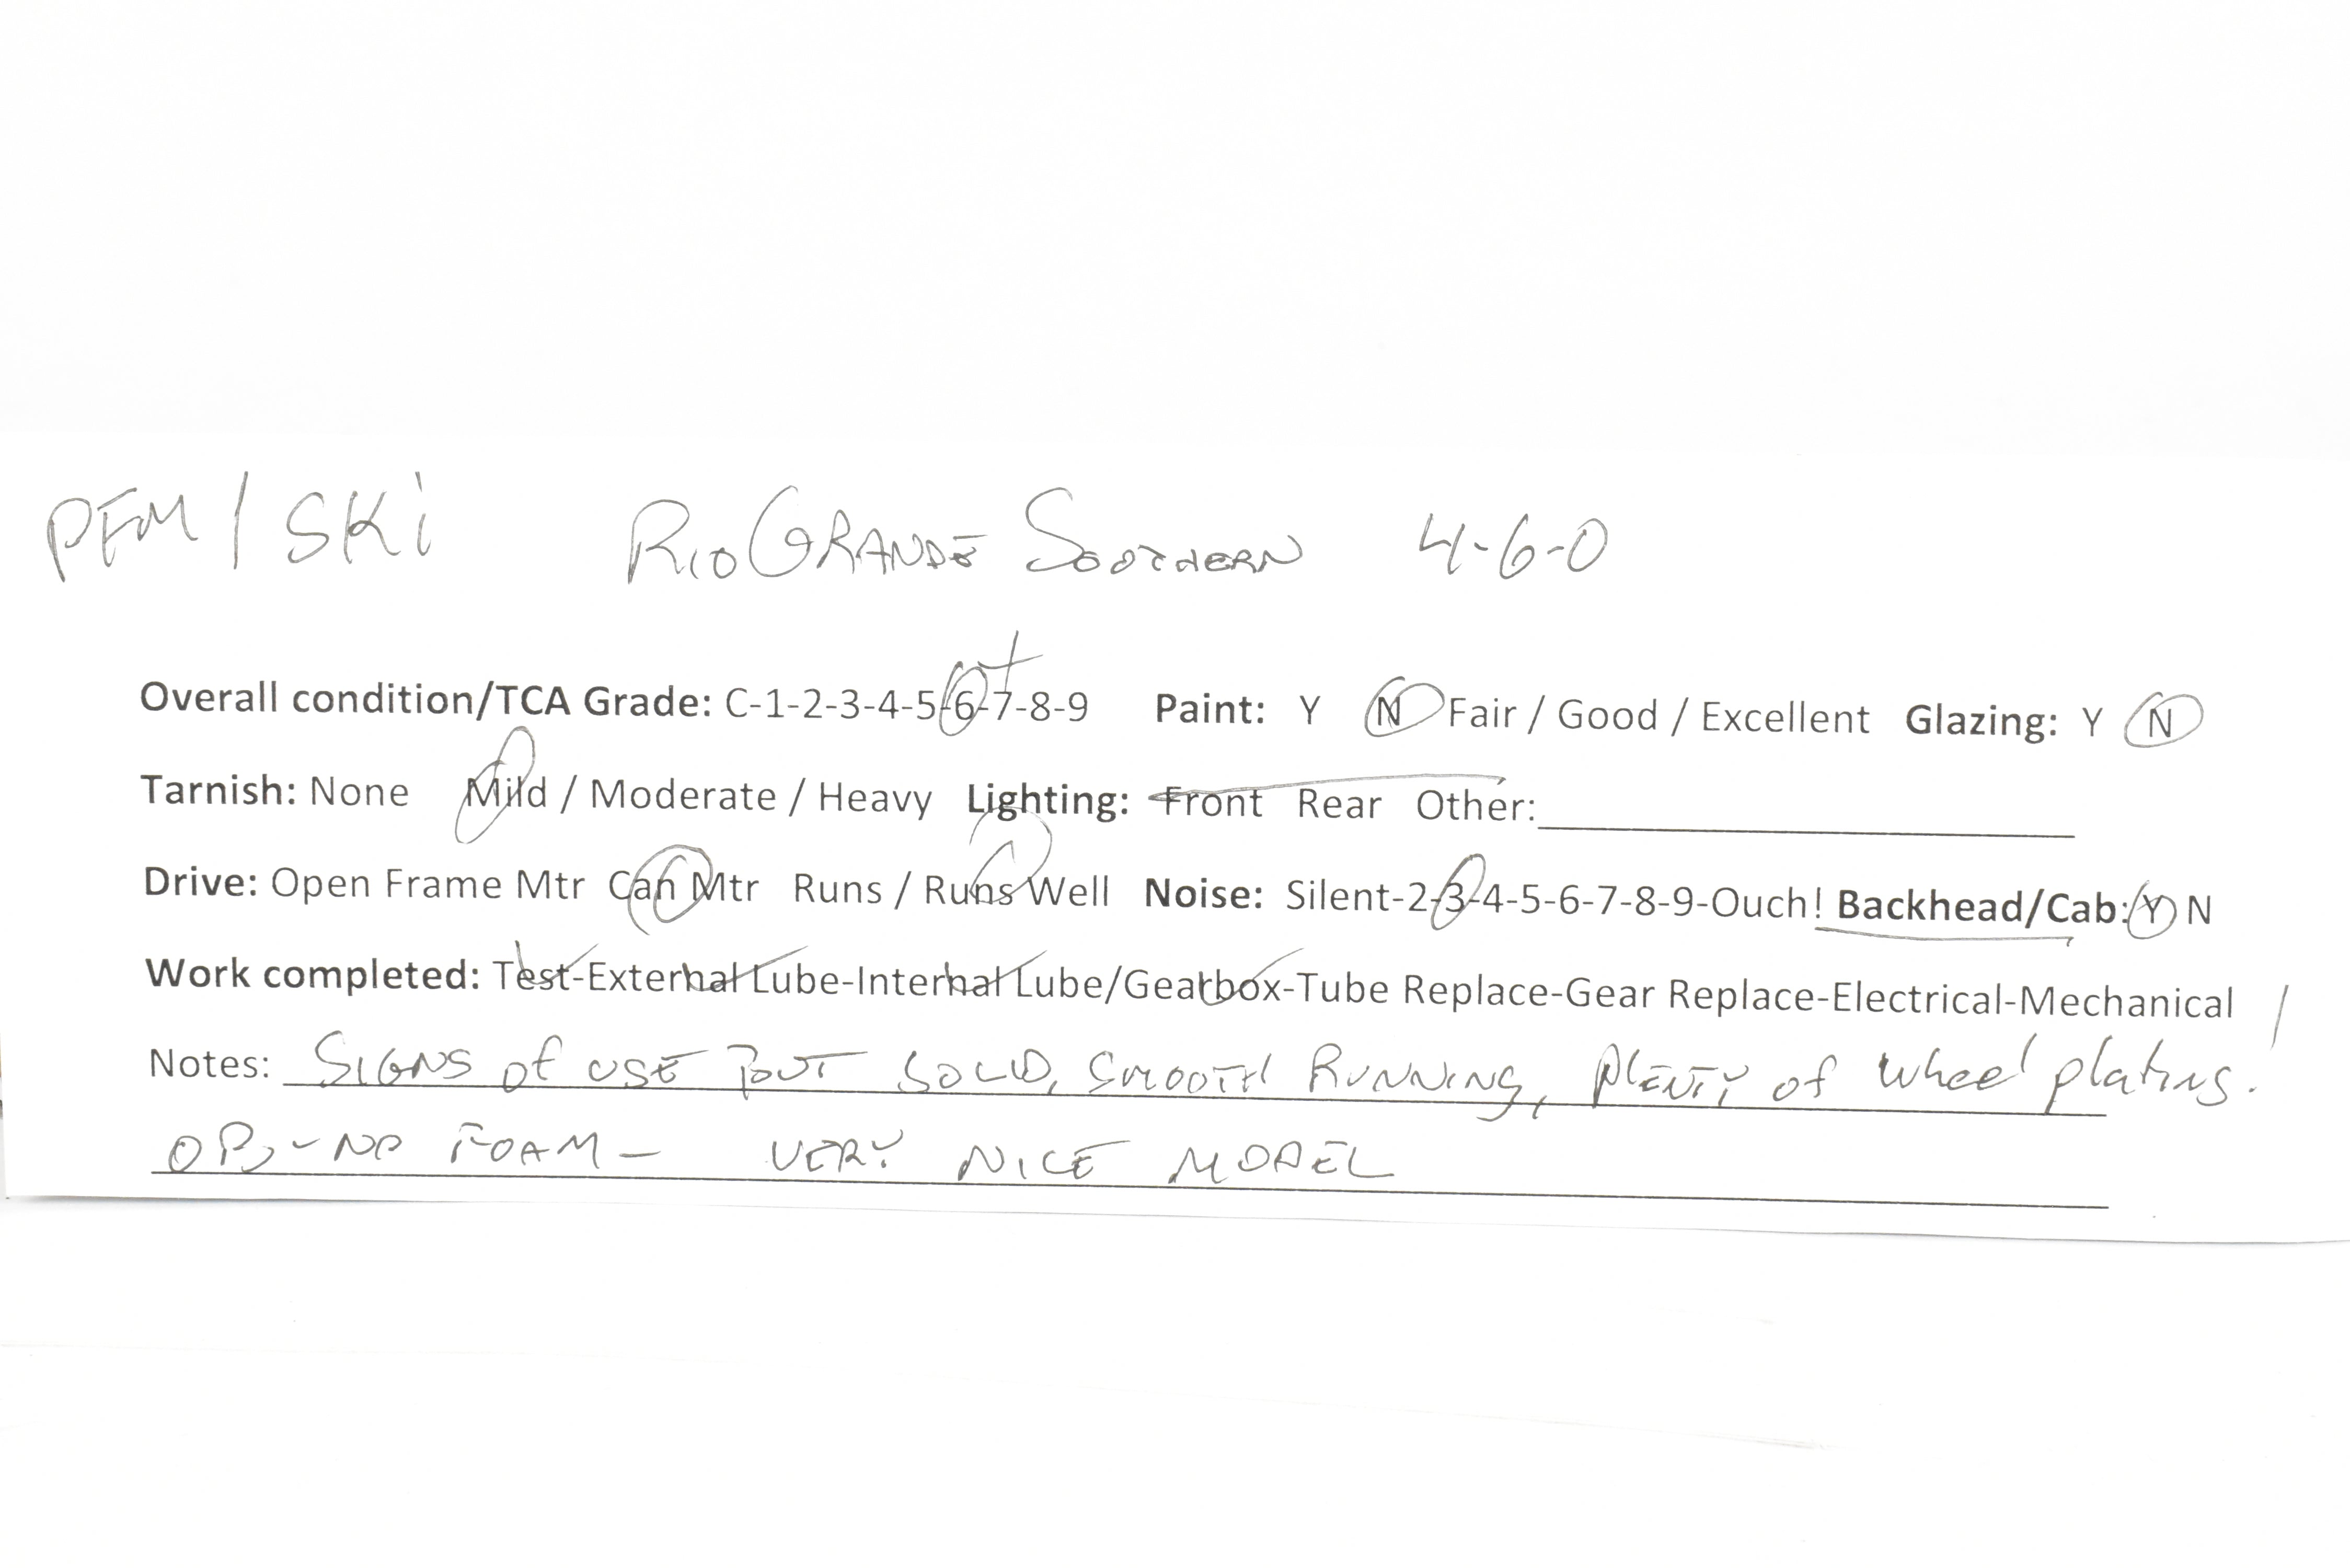 PFM / SKi RIO GRANDE SOUTHERN 4-6-0
Overall condition/TCA Grade: C-1-2-3-4-5-6-7-8-9 + Paint: Y N Fair / Good / Excellent Glazing: Y N
Tarnish: None Mild / Moderate / Heavy Lighting: Front Rear Other:
Drive: Open Frame Mtr Can Mtr Runs / Runs Well Noise: Silent-2-3-4-5-6-7-8-9-Ouch! Backhead/Cab: Y N
Work completed: Test-External Lube-Internal Lube/Gearbox-Tube Replace-Gear Replace-Electrical-Mechanical
Notes: SIGNS of USE BUT SOLID, SMOOTH RUNNING, PLENTY of wheel plating!
OB, - NO FOAM - VERY NICE MODEL